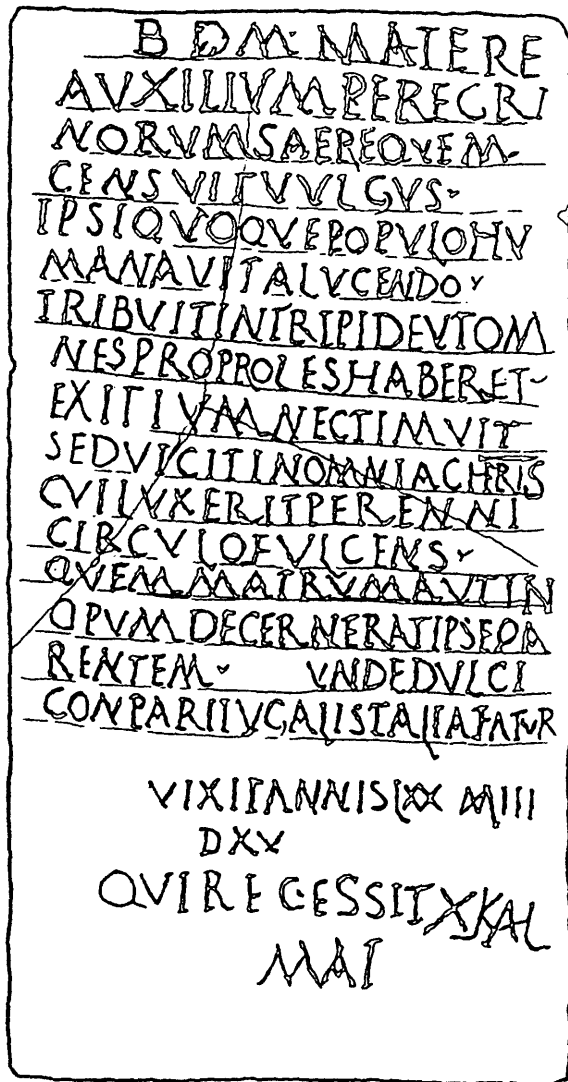 B DM· MATERE
AVXILIVM PEREGRI
NORVMSAEPEQVEM·
CENSVITVVLGVS·
IPSIQVOQVEPOPVLOHV
MANAVITALVCENDO
TRIBVITINTRIPIDEVTOM
NESPROPROLESHABERET
EXITIVMNECTIMVIT
SEDVICITINOMNIACHRIS
CVILVXERITPERENNI
CIRCVLOFVLCENS
QVEMMATRVMAVTIN
OPVMDECERNERATIPSEPA
RENTEM VNDEDVLCI
CONPARIIVGALISTALIAFATVR
VIXITANNISLXX MIII
DXV
QVI RECESSIT X KAL
MAI